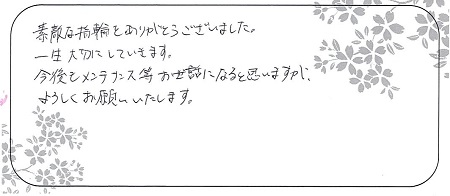 素敵な指輪をありがとうございました。
一生大切にしていきます。
今後もメンテナンス等お世話になると思いますが、
よろしくお願いいたします。